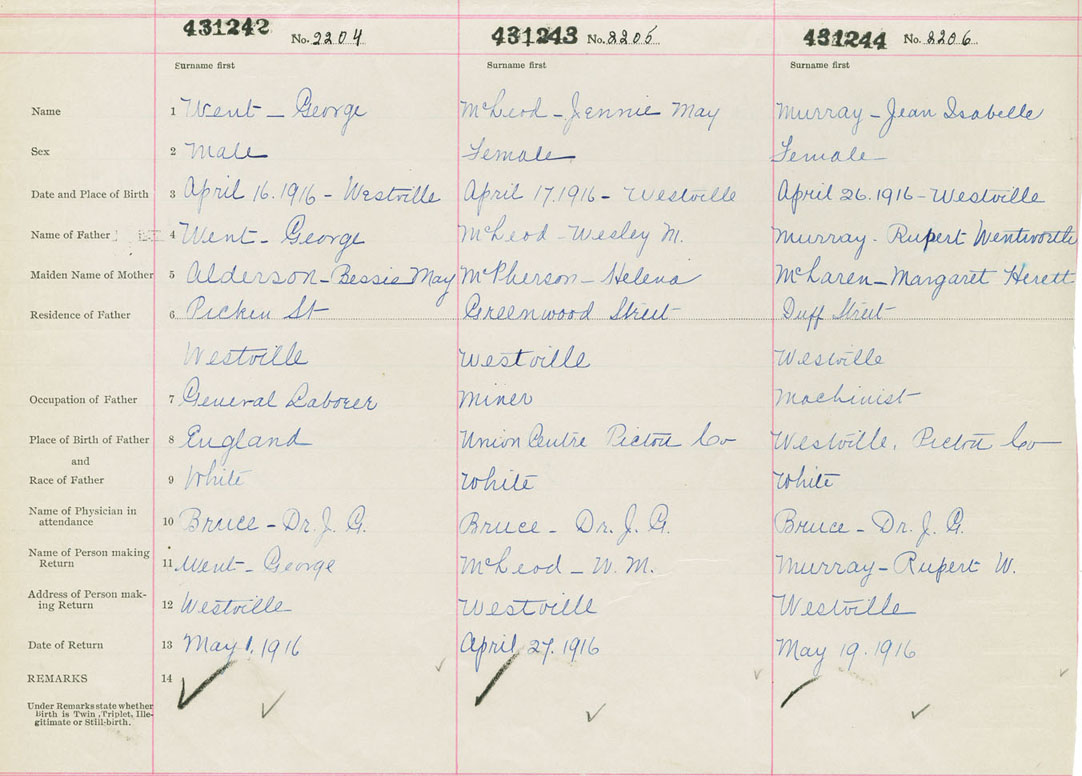 431242 No. 2204 431243 No. 2205 431244 No. 2206
Surname first Surname first Surname first
Name 1 Went - George McLeod - Jennie May Murray - Jean Isabelle
Sex 2 Male Female Female
Date and Place of Birth 3 April 16. 1916 - Westville April 17. 1916 - Westville April 26. 1916 - Westville
Name of Father 4 Went - George McLeod - Wesley M. Murray - Rupert Wentworth
Maiden Name of Mother 5 Alderson - Bessie May McPherson - Helena McLaren - Margaret
Residence of Father 6 Picken St Greenwood Street Duff Street
Westville Westville Westville
Occupation of Father 7 General Laborer Miner Machinist
Place of Birth of Father 8 England Union Centre Pictou Co Westville, Pictou Co
and
Race of Father 9 White White White
Name of Physician in
attendance 10 Bruce - Dr. J. G. Bruce - Dr. J. G. Bruce - Dr. J. G.
Name of Person making
Return 11 Went - George McLeod - W. M. Murray - Rupert W.
Address of Person mak-
ing Return 12 Westville Westville Westville
Date of Return 13 May 1, 1916 April 27, 1916 May 19. 1916
REMARKS 14
Under Remarks state whether
Birth is Twin, Triplet, Ille-
gitimate or Still-birth.